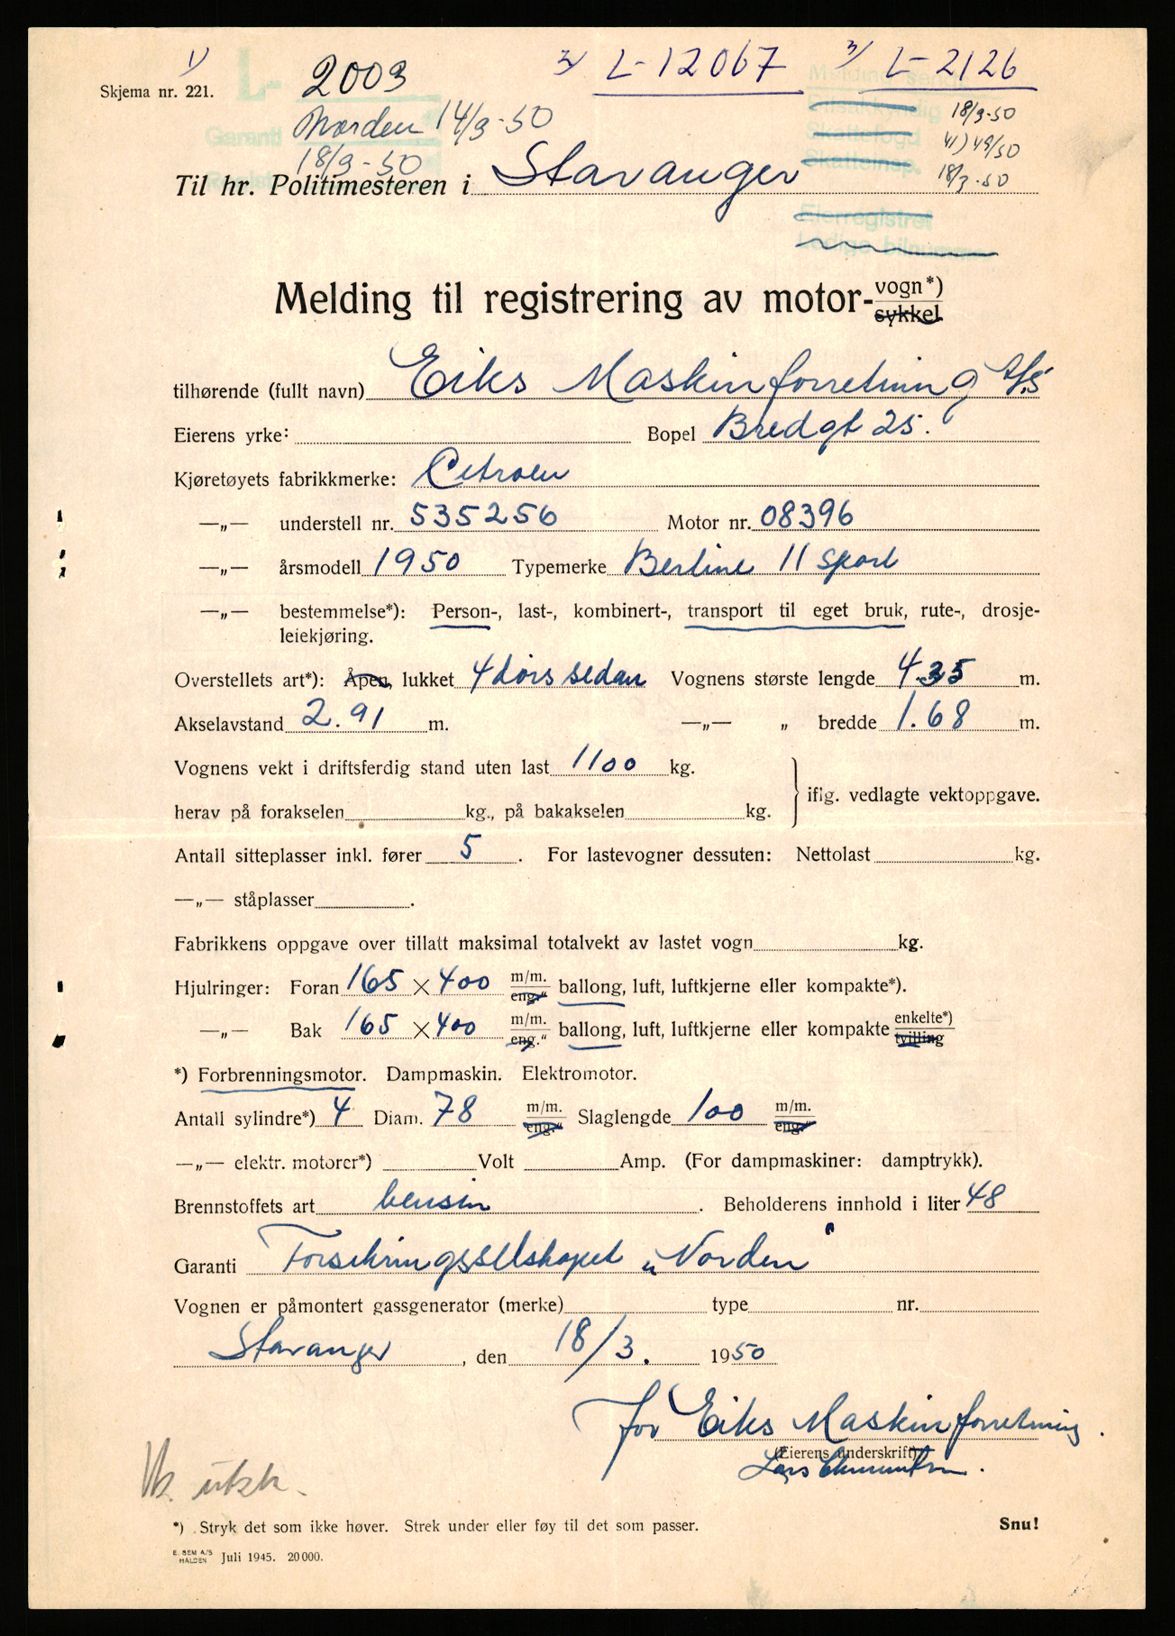 1) L- 2003 2/ L-12067 3/ L-2126
Skjema nr. 221.
Garanti Norden 14/3-50
18/3-50
18/3-50
18/3-50
Til hr. Politimesteren i Stavanger
Skattefogd
Eierregistret
Melding til registrering av motor-vogn*)
sykkel
tilhørende (fullt navn) Eiks Maskinforretning A/S
Eierens yrke: Bopel Bredgt 25.
Kjøretøyets fabrikkmerke: Citroen
—„— understell nr. 535256 Motor nr. 08396
—„— årsmodell 1950 Typemerke Berline 11 sport
—„— bestemmelse*): Person-, last-, kombinert-, transport til eget bruk, rute-, drosje-
leiekjøring.
Overstellets art*): Åpen, lukket 4 dørs sedan Vognens største lengde 4.35 m.
Akselavstand 2.91 m. —„— „ bredde 1.68 m.
Vognens vekt i driftsferdig stand uten last 1100 kg.
iflg. vedlagte vektoppgave.
herav på forakselen kg., på bakakselen kg.
Antall sitteplasser inkl. fører 5. For lastevogner dessuten: Nettolast kg.
—„— ståplasser .
Fabrikkens oppgave over tillatt maksimal totalvekt av lastet vogn kg.
Hjulringer: Foran 165 × 400 m/m. eng." ballong, luft, luftkjerne eller kompakte*).
—„— Bak 165 × 400 m/m. eng." ballong, luft, luftkjerne eller kompakte enkelte*) tvilling
*) Forbrenningsmotor. Dampmaskin. Elektromotor.
Antall sylindre*) 4 Diam. 78 m/m. eng." Slaglengde 100 m/m. eng."
—„— elektr. motorer*) Volt Amp. (For dampmaskiner: damptrykk).
Brennstoffets art bensin . Beholderens innhold i liter 48
Garanti Forsikringsselskapet „Norden"
Vognen er påmontert gassgenerator (merke) type nr.
Stavanger, den 18/3. 1950
for Eiks Maskinforretning.
(Eierens underskrift)
Lars
Vk. utkk.
*) Stryk det som ikke høver. Strek under eller føy til det som passer. Snu!
E. SEM A/S
HALDEN Juli 1945. 20 000.